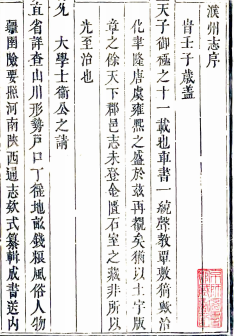 濮州志序
昔壬子歲蓋
天子御極之十一載也車書一統聲教覃敷猗歟治
化華隆唐虞雍熙之盛於茲再覩矣猶以土宇版
章之餘天下郡邑志未登金匱石室之藏非所以
光至治也
允大學士衛公之請
直省詳查山川形勢戶口丁徭地畝錢粮風俗人物
疆圉險要照河南陝西通志欵式纂輯成書送内